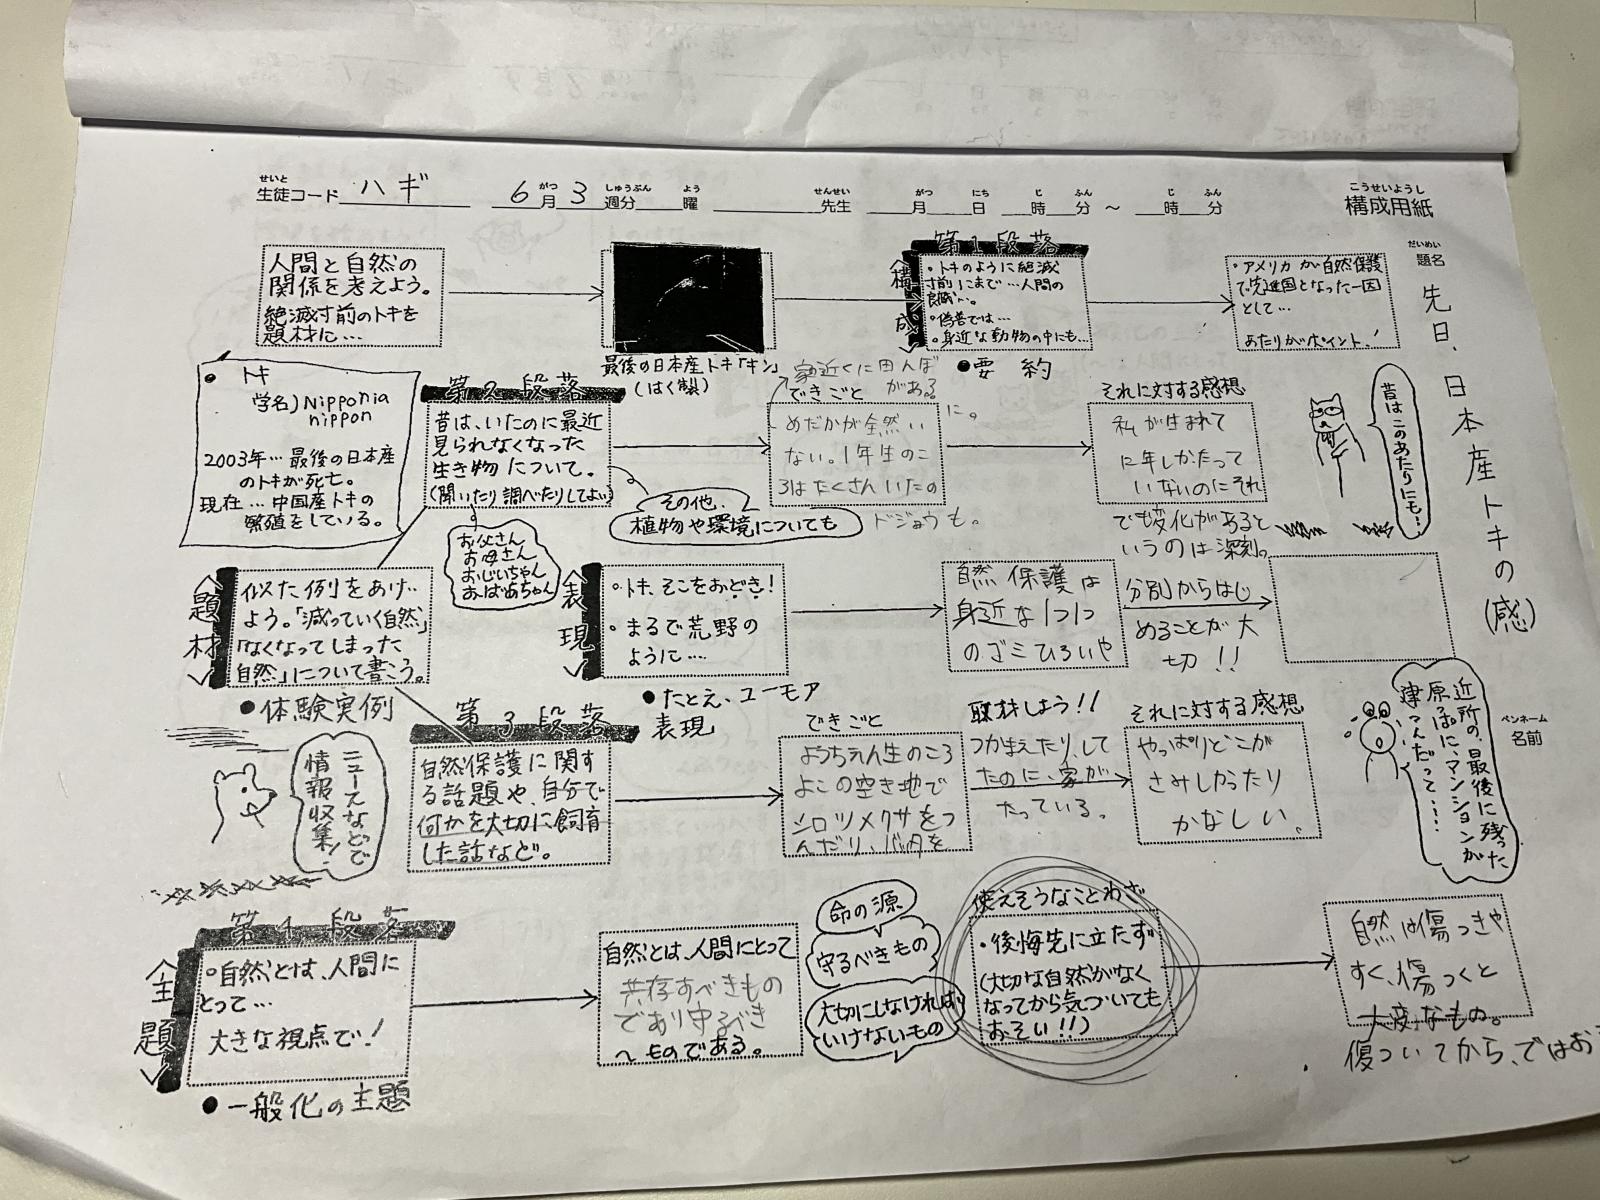 せいと
生徒コード ハギ
がつ しゅうぶん よう
6月3週分 曜
せんせい
先生
がつ にち じ ふん じ ふん
月 日 時 分 ～ 時 分
こうせいようし
構成用紙
だいめい
題名
先日、日本産トキの(感)
ペンネーム
名前
人間と自然の
関係を考えよう。
絶滅寸前のトキを
題材に…
最後の日本産トキ「キン」
(はく製)
第1段落
〈構成〉
・トキのように絶滅
寸前にまで…人間の
良識…。
・偽善では…
・身近な動物の中にも…
●要約
・アメリカが自然保護
で先進国となった一因
として…
あたりがポイント!
トキ
学名)Nipponia
nippon
2003年…最後の日本産
のトキが死亡。
現在…中国産トキの
繁殖をしている。
第2段落
昔は、いたのに最近
見られなくなった
生き物について。
(聞いたり調べたりしてよい)
その他、
植物や環境についても
お父さん
お母さん
おじいちゃん
おばあちゃん
家近くに田んぼ
がある。
できごと
めだかが全然い
ない。1年生のこ
ろはたくさんいたの
に。
ドジョウも。
それに対する感想
私が生まれて
に年しかたって
いないのにそれ
でも変化があると
いうのは深刻。
昔はこのあたりにも…
〈題材〉
似た例をあげ
よう。「減っていく自然」
「なくなってしまった
自然」について書こう。
●体験実例
〈表現〉
・トキ、そこをおどき!
・まるで荒野の
ように…
●たとえ、ユーモア
表現
自然保護は
身近な1つ1つ
のゴミひろいや
分別からはじ
めることが大
切!!
ニュースなどで
情報収集!
第3段落
自然保護に関す
る話題や、自分で
何かを大切に飼育
した話など。
できごと
ようちえん生のころ
よこの空き地で
シロツメクサをつ
んだり、バッタを
取材しよう!!
つかまえたり、して
たのに、家が
たっている。
それに対する感想
やっぱりどこか
さみしかったり
かなしい。
近所の、最後に残った
原っぱに、マンションが
建つんだって……
第4段落
〈主題〉
・自然とは、人間に
とって…
大きな視点で!
●一般化の主題
自然とは、人間にとって
共存すべきもの
であり守るべき
～ものである。
命の源
守るべきもの
大切にしなければ
いけないもの
使えそうなことわざ
・後悔先に立たず
(大切な自然がなく
なってから気づいても
おそい!!)
自然は傷つきや
すく、傷つくと
大変なもの。
傷ついてから、ではお